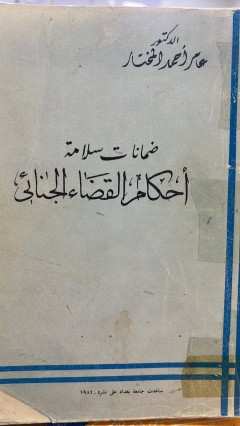 الدكتور
عامر أحمد المختار
ضمانات سلامة
أحكام القضاء الجنائي
ساعدت جامعة بغداد على نشره - ١٩٨١